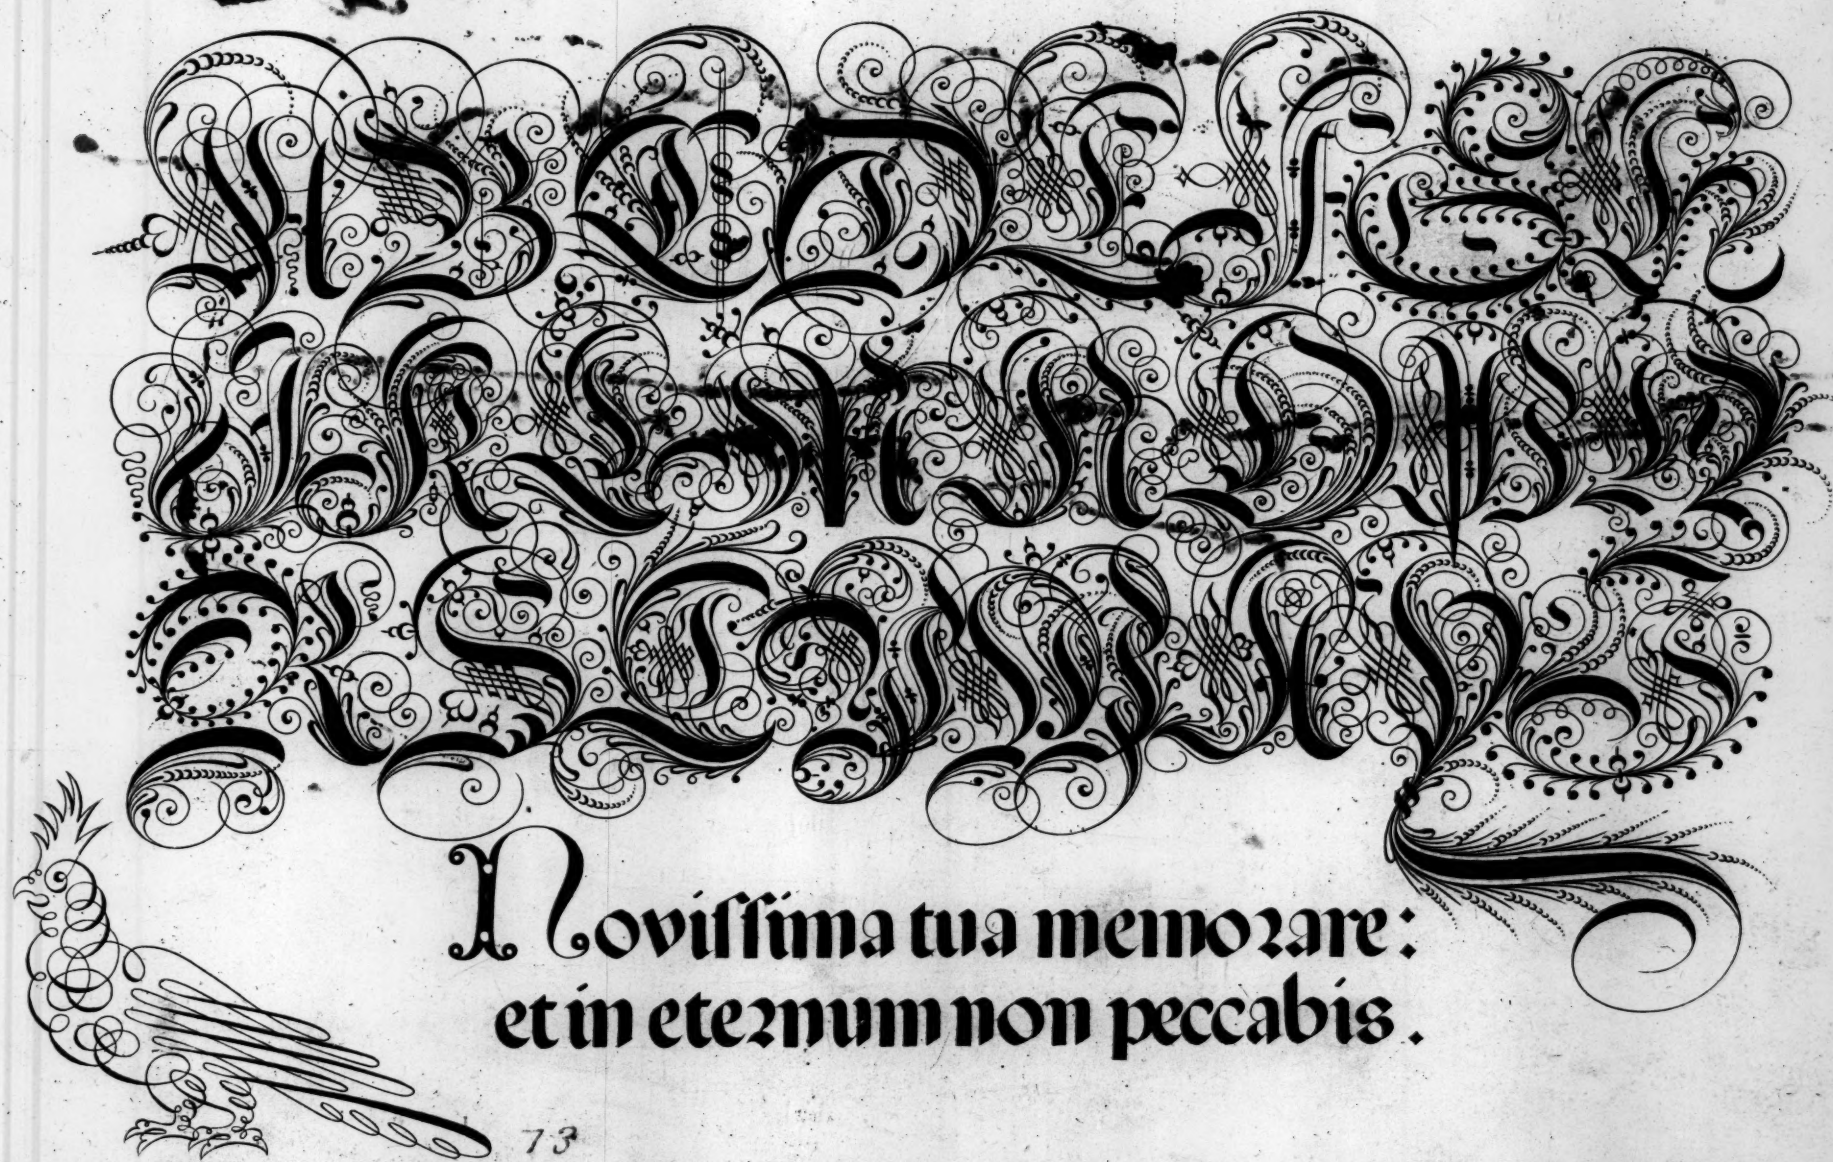 A B C D E F G H
I K L M N O P
R S T Y Z
Noviſſima tua memoꝛare:
et in eteꝛnum non peccabis.
73